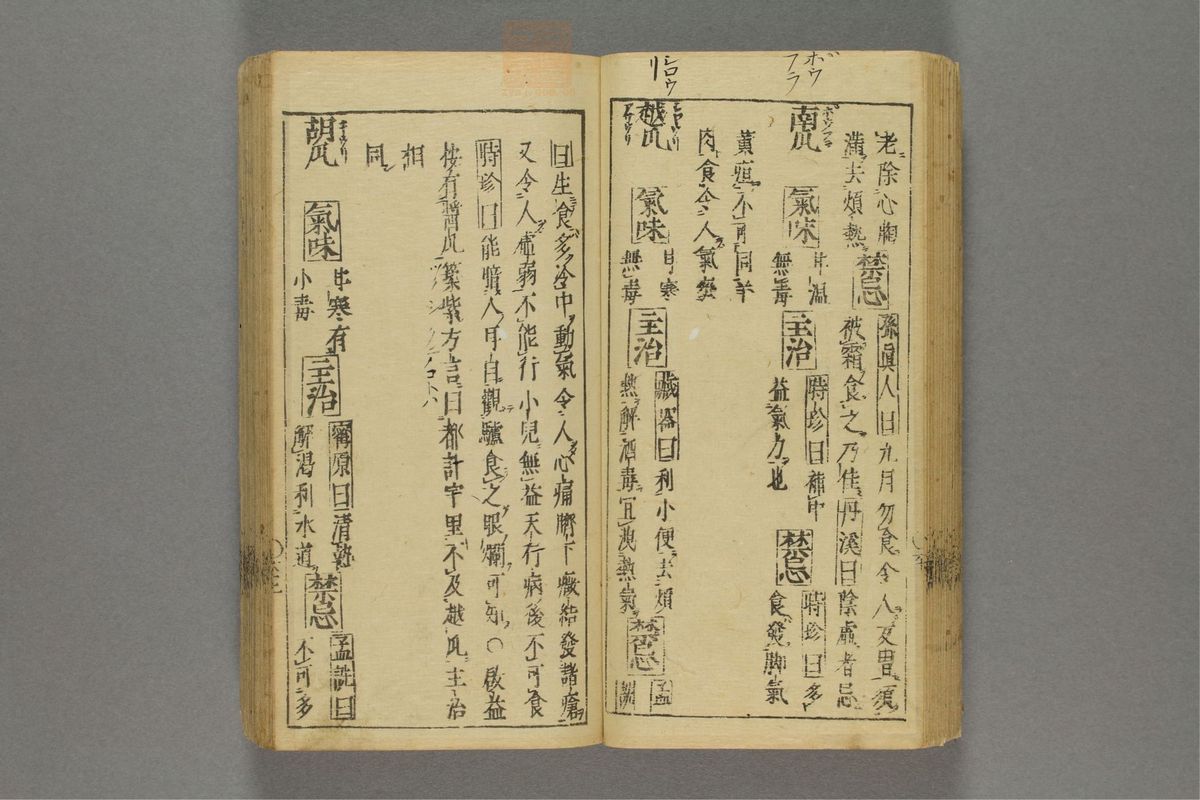 ボウフラ
シロウリ
老除心胸
滿去煩熱 禁忌 孫眞人曰九月勿食令人反胃須
被霜食之乃佳丹溪曰陰虛者忌
南瓜 ボウフラ 氣味 甘溫
無毒 主治 時珍曰補中
益氣力也 禁忌 時珍曰多
食發脚氣
黃疸不可同羊
肉食令人氣壅
越瓜 氣味 甘寒
無毒 主治 藏器曰利小便去煩
熱解酒毒宜洩熱氣 禁忌 孟
詵
曰生食多冷中動氣令人心痛臍下癥結發諸瘡
又令人虛弱不能行小兒無益天行病後不可食
時珍曰能暗人耳目觀驢食之眼爛可知〇後益
按有醬瓜篆紫方言曰都計宇里不及越瓜主治
相
同
胡瓜 キウリ 氣味 甘寒有
小毒 主治 甯原曰清熱
解渴利水道 禁忌 孟詵曰
不可多